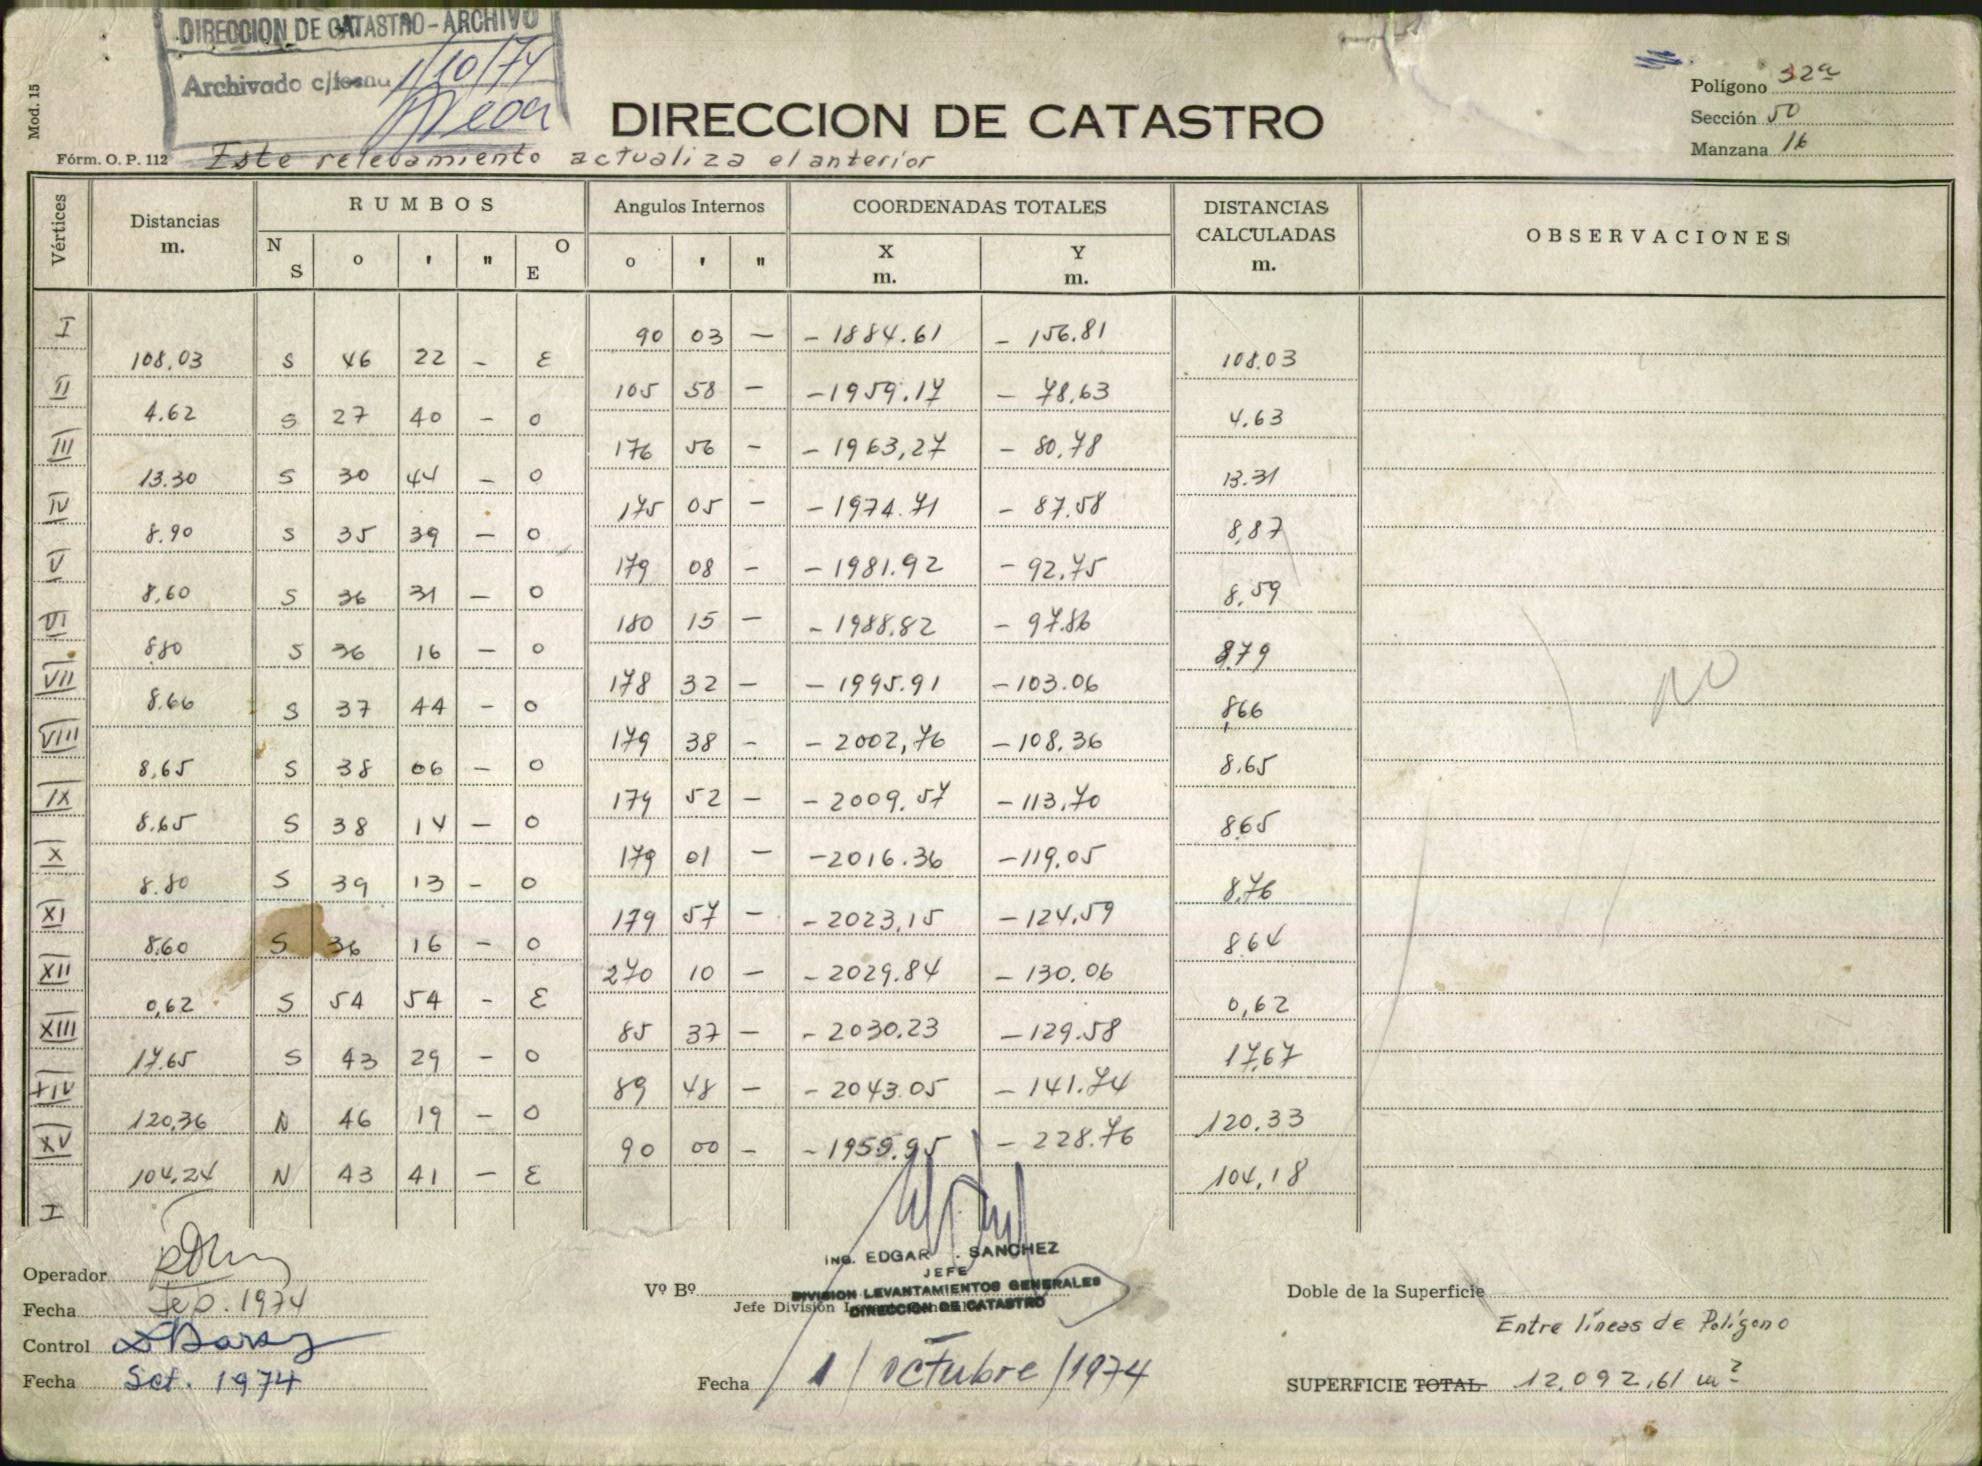 DIRECCION DE CATASTRO - ARCHIVO
Archivado c/fecha 1/10/74
Mod. 15
DIRECCION DE CATASTRO
Polígono 32a
Sección 50
Manzana 16
Fórm. O. P. 112 Este relevamiento actualiza el anterior
Vértices Distancias m. RUMBOS N S o ' " O E Angulos Internos o ' " COORDENADAS TOTALES X m. Y m. DISTANCIAS CALCULADAS m. OBSERVACIONES
I 90 03 — - 1884.61 - 156.81
108.03 S 46 22 - E 108.03
II 105 58 — - 1959.17 - 78.63
4.62 S 27 40 - O 4.63
III 176 56 - - 1963,27 - 80.78
13.30 S 30 44 - O 13.31
IV 175 05 - - 1974.71 - 87.58
8.90 S 35 39 - O 8,87
V 179 08 - - 1981.92 - 92.75
8,60 S 36 31 - O 8,59
VI 180 15 - - 1988.82 - 97.86
8.80 S 36 16 - O 8.79
VII 178 32 - - 1995.91 - 103.06
8.66 S 37 44 - O 8,66
VIII 179 38 - - 2002,76 - 108.36
8,65 S 38 06 - O 8.65
IX 179 52 - - 2009.57 - 113.70
8.65 S 38 14 - O 8.65
X 179 01 - - 2016.36 - 119.05
8.80 S 39 13 - O 8.76
XI 179 57 - - 2023,15 - 124.59
8.60 S 36 16 - O 8.64
XII 270 10 - - 2029.84 - 130.06
0,62 S 54 54 - E 0,62
XIII 85 37 - - 2030.23 - 129.58
17.65 S 43 29 - O 17.67
XIV 89 48 - - 2043.05 - 141.74
120,36 N 46 19 - O 120.33
XV 90 00 - - 1959.95 - 228.76
104,24 N 43 41 - E 104,18
I
NO
Operador
Fecha Sep. 1974
Control
Fecha Set. 1974
Vº Bº
ING. EDGAR SANCHEZ
JEFE
DIVISION LEVANTAMIENTOS GENERALES
DIRECCION DE CATASTRO
Jefe División
Fecha 1/octubre/1974
Doble de la Superficie
Entre líneas de Polígono
SUPERFICIE TOTAL 12.092,61 m²